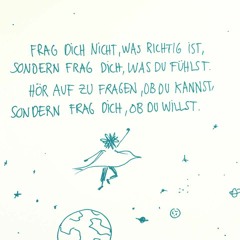 FRAG DICH NICHT, WAS RICHTIG IST,
SONDERN FRAG DICH, WAS DU FÜHLST.
HÖR AUF ZU FRAGEN, OB DU KANNST,
SONDERN FRAG DICH, OB DU WILLST.